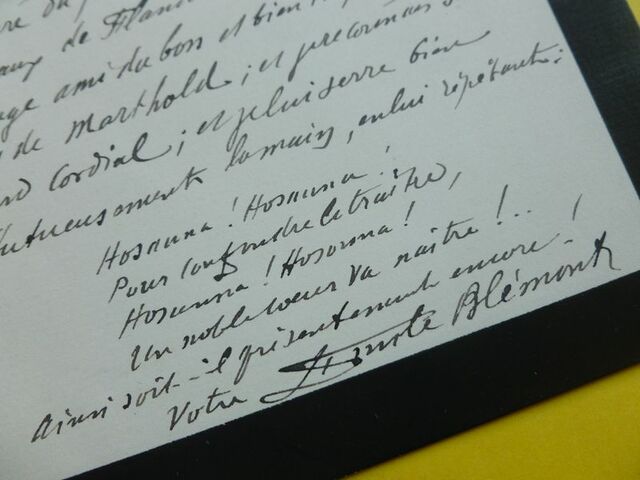 aux de Flan
age ami du bon et bien
de Marthold ; et preconenais
cordial ; et je lui serre bien
tueusement la main, en lui répétant :
Hosanna ! Hosanna !
Pour confondre le traître,
Hosanna ! Hosanna !
Un noble coeur va naître ! ..
Ainsi soit-il présentement encore !
Votre
Emile Blémont